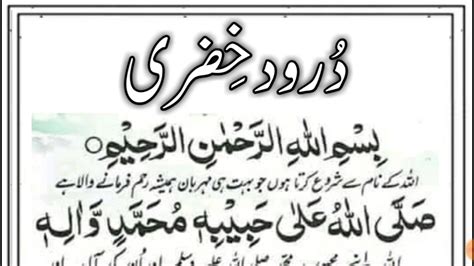 دُرود خِضری
بِسْمِ اللهِ الرَّحْمٰنِ الرَّحِيْمِ
اللہ کے نام سے شروع کرتا ہوں جو بہت ہی مہربان ہمیشہ رحم فرمانے والا ہے
صَلَّى اللهُ عَلٰى حَبِيْبِهٖ مُحَمَّدٍ وَّاٰلِهٖ